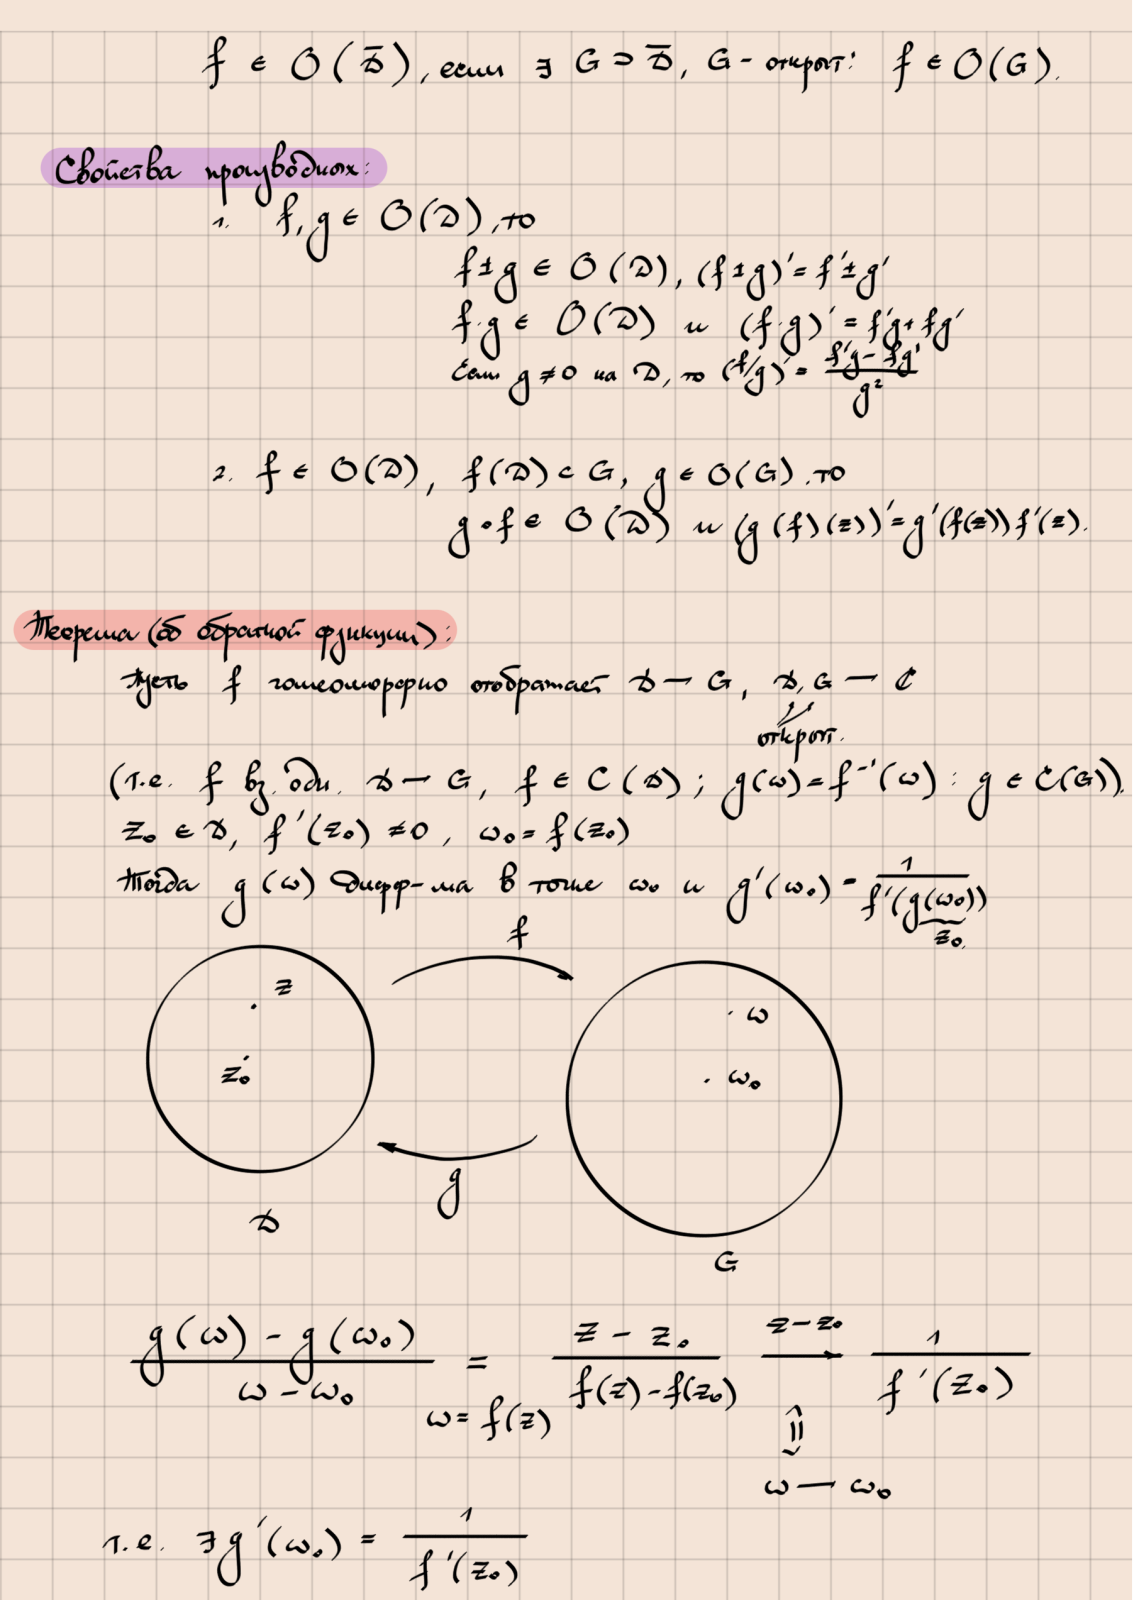 f ∈ O(D̄), если ∃ G ⊃ D̄, G - открыт: f ∈ O(G).
Свойства производных:
1. f, g ∈ O(D), то
f ± g ∈ O(D), (f ± g)' = f' ± g'
f·g ∈ O(D) и (f·g)' = f'g + fg'
Если g ≠ 0 на D, то (f/g)' = (f'g - fg')/g²
2. f ∈ O(D), f(D) ⊂ G, g ∈ O(G), то
g∘f ∈ O(D) и (g(f)(z))' = g'(f(z)) f'(z).
Теорема (об обратной функции):
Пусть f гомеоморфно отображает D → G, D, G — ℂ
открыт.
(т.е. f вз. одн. D → G, f ∈ C(D); g(ω) = f⁻¹(ω) : g ∈ C(G)).
z₀ ∈ D, f'(z₀) ≠ 0, ω₀ = f(z₀)
Тогда g(ω) дифф-ма в точке ω₀ и g'(ω₀) = 1/f'(g(ω₀))
z₀.
f
z
ω
z₀
ω₀
g
D
G
(g(ω) - g(ω₀))/(ω - ω₀) = (z - z₀)/(f(z) - f(z₀)) → 1/f'(z₀)
z → z₀
ω = f(z)
⇕
ω → ω₀
т.е. ∃ g'(ω₀) = 1/f'(z₀)